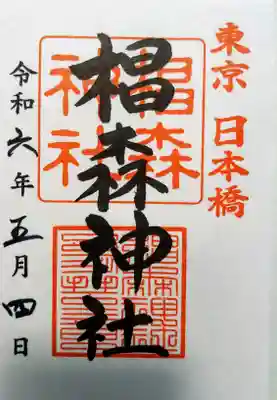 東京 日本橋
椙森神社
椙森
神社
令和六年五月四日